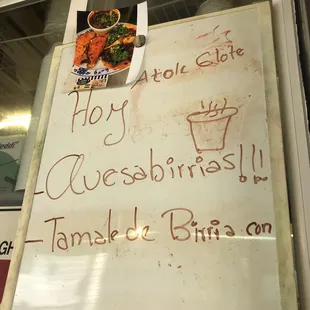 Atole Elote
Hoy
- Quesabirrias!!!
- Tamale de Birria con
GH